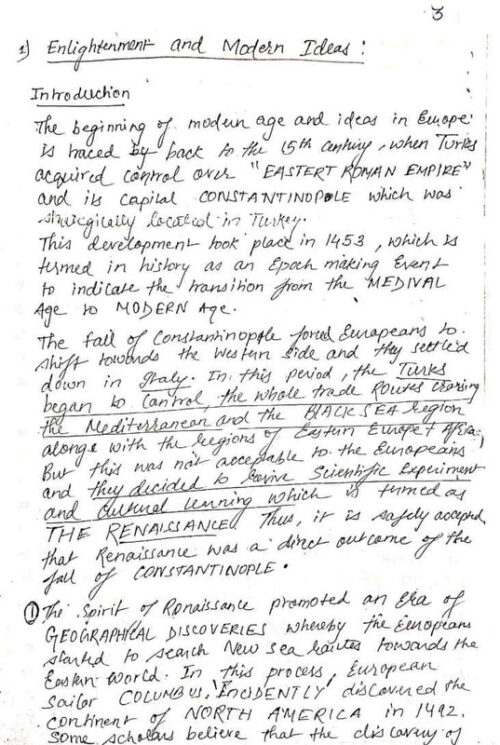 3
1) Enlightenment and Modern Ideas :
Introduction
The beginning of modern age and ideas in Europe
is traced by back to the 15th century, when Turks
acquired control over "EASTERT ROMAN EMPIRE"
and its capital CONSTANTINOPOLE which was
strategically located in Turkey.
This development took place in 1453, which is
termed in history as an Epoch making Event
to indicate the transition from the MEDIVAL
Age to MODERN Age.
The fall of Constantinopole forced Europeans to
shift towards the Western side and they settled
down in Italy. In this period, the Turks
began to control, the whole trade Routes
the Mediterranean and the BLACK SEA region
along with the regions of Eastern Europe & Africa,
But this was not acceptable to the Europeans
and they decided to Scientific Experiment
and cultural learning which is termed as
THE RENAISSANCE. Thus, it is safely accepted
that Renaissance was a direct outcome of the
fall of CONSTANTINOPLE.
① The Spirit of Renaissance promoted an Era of
GEOGRAPHICAL DISCOVERIES whereby the Europeans
started to search New sea routes towards the
Eastern world. In this process, European
Sailor COLUMBUS, INCIDENTLY discovered the
continent of NORTH AMERICA in 1492.
Some scholars believe that the discovery of